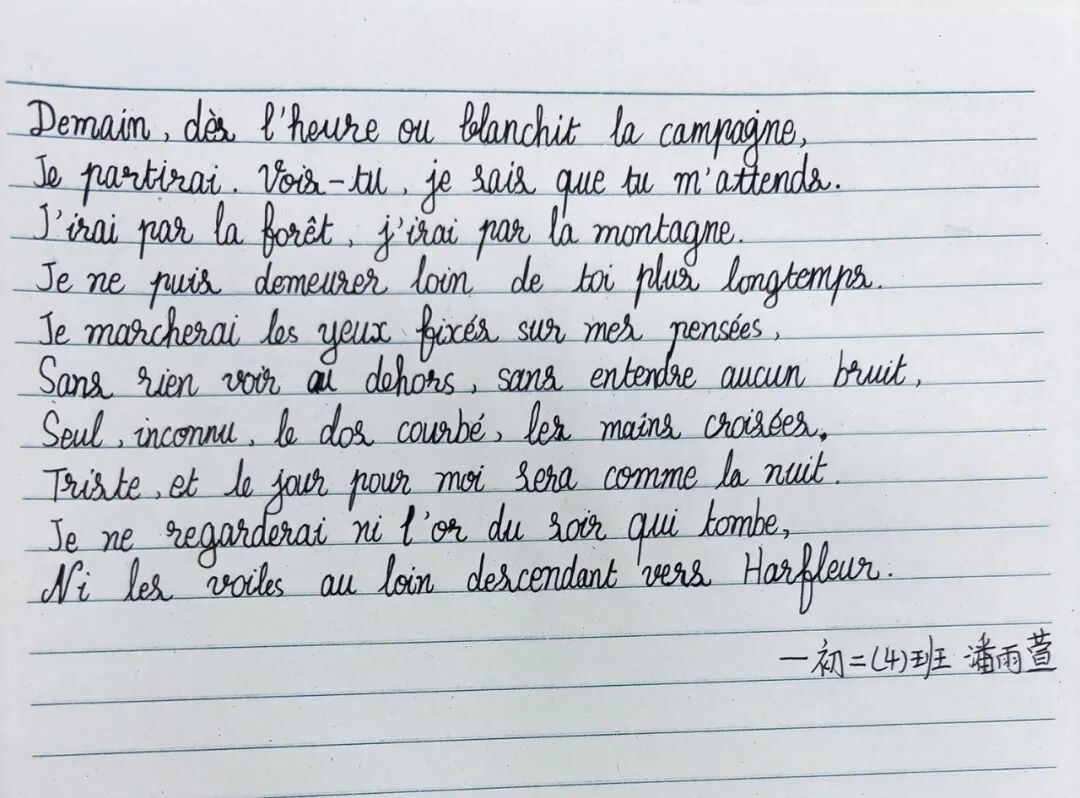 Demain, dès l'heure ou blanchit la campagne,
Je partirai. Vois-tu, je sais que tu m'attends.
J'irai par la forêt, j'irai par la montagne.
Je ne puis demeurer loin de toi plus longtemps.
Je marcherai les yeux fixés sur mes pensées,
Sans rien voir au dehors, sans entendre aucun bruit,
Seul, inconnu, le dos courbé, les mains croisées,
Triste, et le jour pour moi sera comme la nuit.
Je ne regarderai ni l'or du soir qui tombe,
Ni les voiles au loin descendant vers Harfleur.
一初二(4)班 潘雨萱